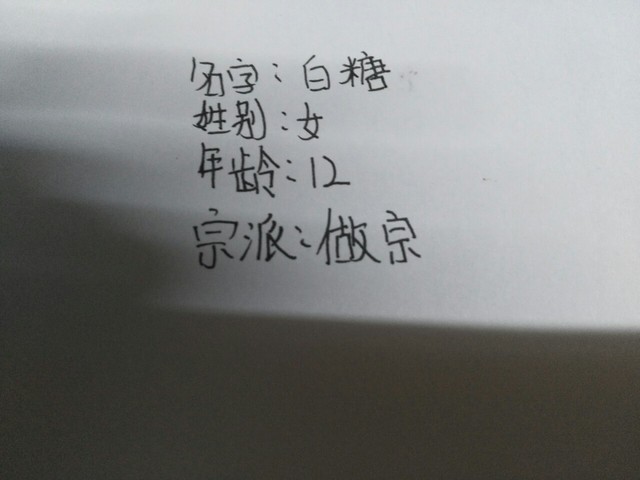 名字：白糖
姓别：女
年龄：12
宗派：做宗